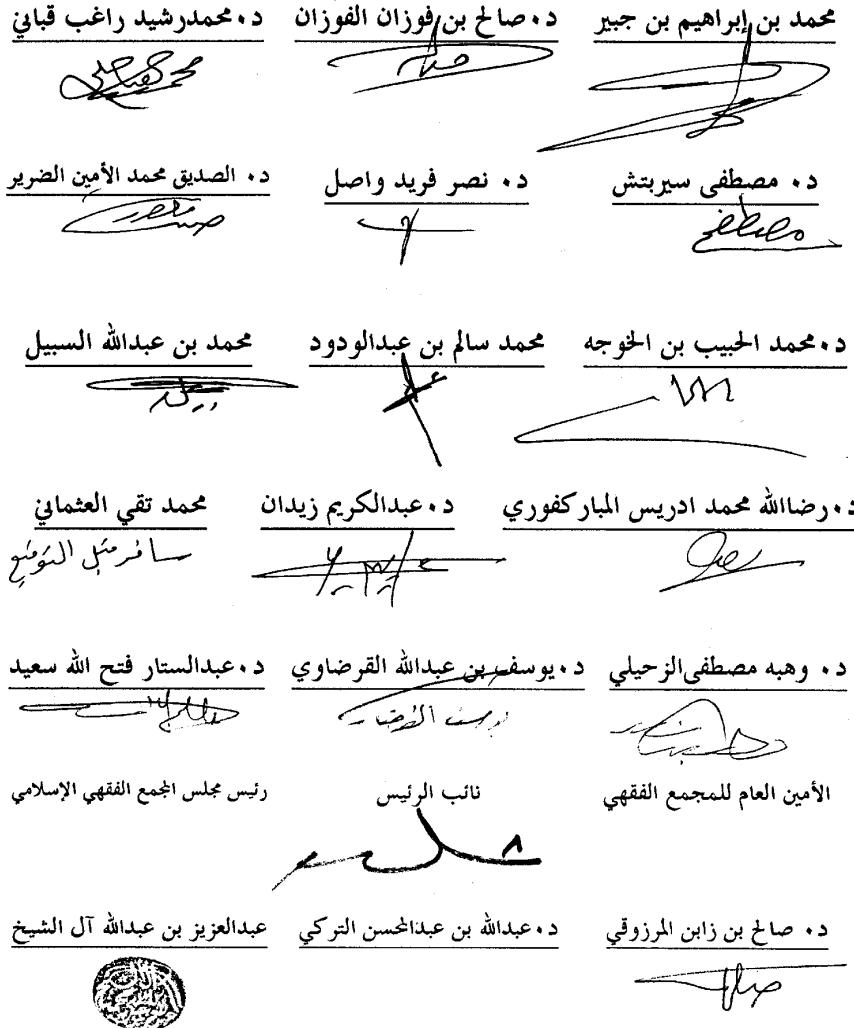 محمد بن إبراهيم بن جبير د٠صالح بن فوزان الفوزان د٠محمدرشيد راغب قباني
د٠ مصطفى سيربتش د٠ نصر فريد واصل د٠ الصديق محمد الأمين الضرير
مصطفى
د٠محمد الحبيب بن الخوجه محمد سالم بن عبدالودود محمد بن عبدالله السبيل
د٠رضاالله محمد ادريس المباركفوري د٠عبدالكريم زيدان محمد تقي العثماني
سافر قبل التوقيع
د٠ وهبه مصطفى الزحيلي د٠يوسف بن عبدالله القرضاوي د٠عبدالستار فتح الله سعيد
الأمين العام للمجمع الفقهي نائب الرئيس رئيس مجلس المجمع الفقهي الإسلامي
د٠ صالح بن زابن المرزوقي د٠عبدالله بن عبدالمحسن التركي عبدالعزيز بن عبدالله آل الشيخ